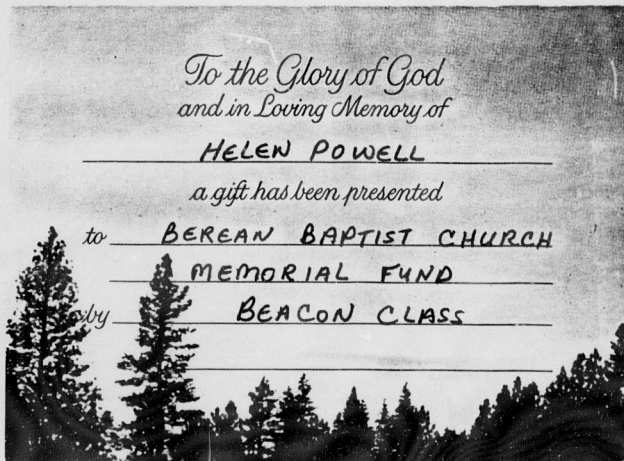 To the Glory of God
and in Loving Memory of
HELEN POWELL
a gift has been presented
to BEREAN BAPTIST CHURCH
MEMORIAL FUND
by BEACON CLASS